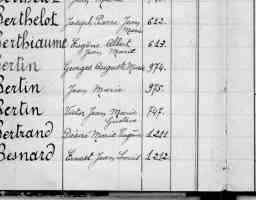 Berthelot Joseph Pierre Jean Marie 612.
Berthiaume Eugène Albert Jean Marie 613.
Bertin Georges Auguste Marie 974.
Bertin Jean Marie 975.
Bertin Victor Jean Marie Gustave 747.
Bertrand Désiré Marie Eugène 1211.
Besnard Ernest Jean Louis 1212.